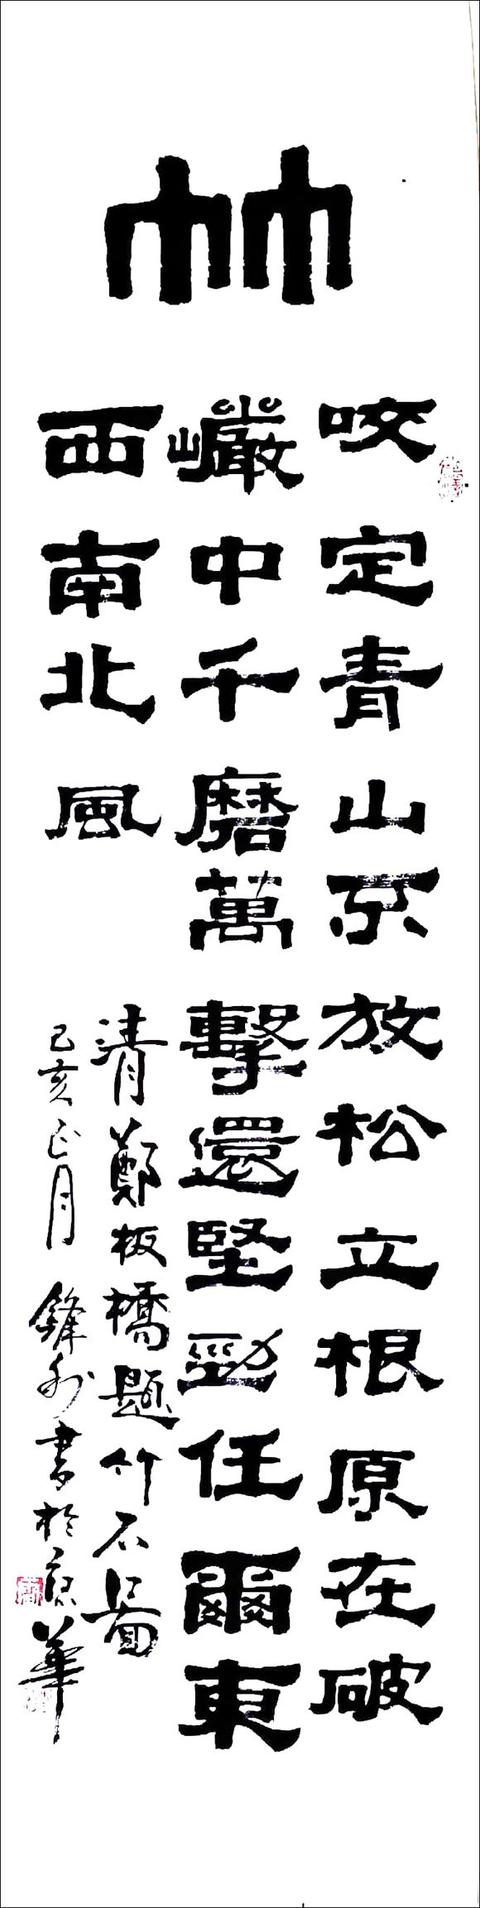 竹
咬定青山不放松立根原在破
巗中千磨萬擊還堅勁任爾東
西南北風
清鄭板橋題竹石圖
己亥正月 鋒 書於京華